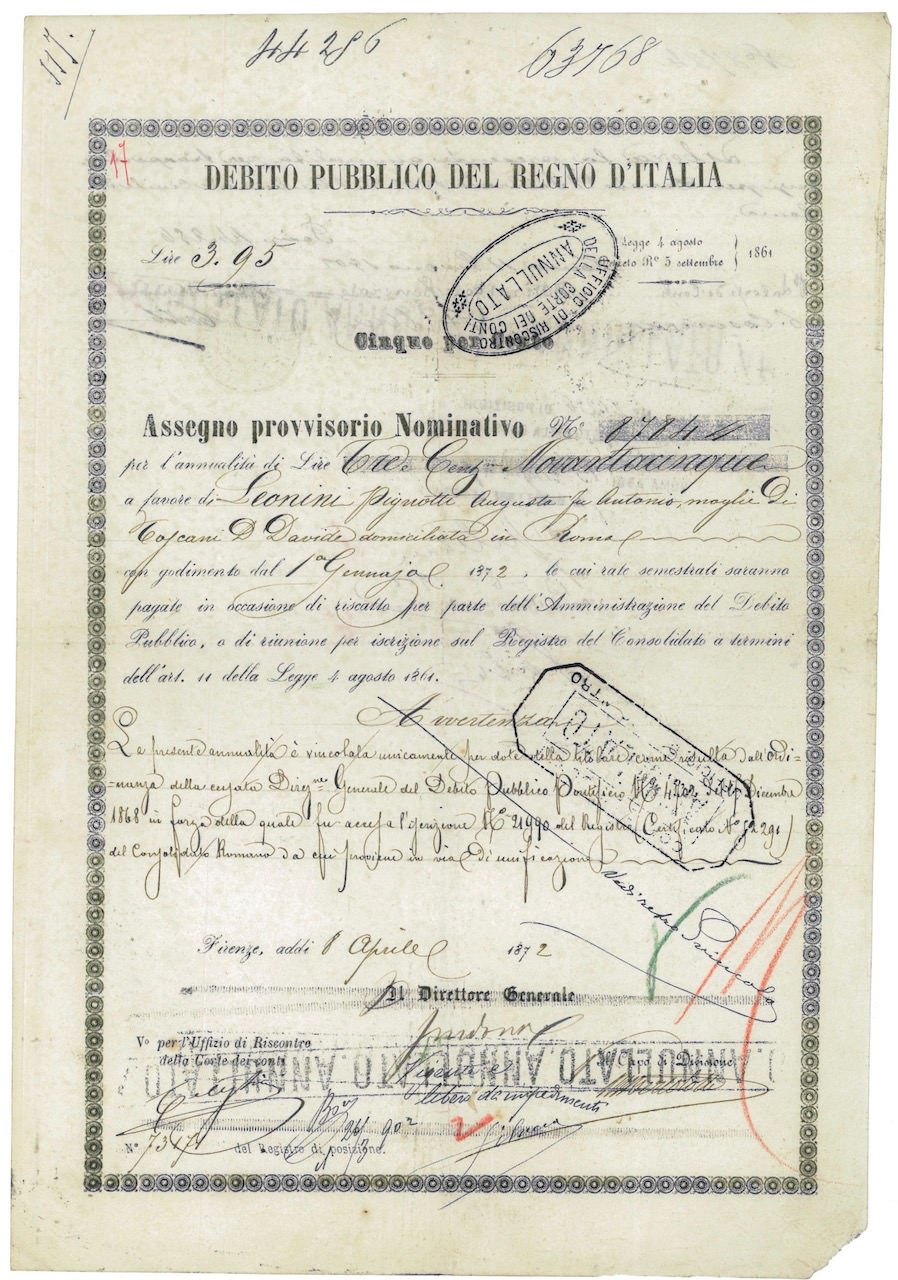 117.
44286
63768
17
DEBITO PUBBLICO DEL REGNO D'ITALIA
Lire 3.95
Legge 4 agosto
Decreto Rº 5 settembre
1861
UFFICIO DI RISCONTRO
DELLA CORTE DEI CONTI
ANNULLATO
Cinque per
Assegno provvisorio Nominativo Nº
per l'annualità di Lire Tre e Cent. Novantacinque
a favore di Leonini Pignotti Augusta fu Antonio, moglie di
Toscani D Davide domiciliata in Roma
con godimento dal 1º Gennajo 1872, le cui rate semestrali saranno
pagate in occasione di riscatto per parte dell'Amministrazione del Debito
Pubblico, o di riunione per iscrizione sul Registro del Consolidato a termini
dell'art. 11 della Legge 4 agosto 1861.
Avvertenza
La presente annualità è vincolata unicamente per dote della titolare, come risulta dall'Ordi-
nanza della cessata Direzne Generale del Debito Pubblico Pontificio Dicembre
1868 in forza della quale fu accesa l'iscrizione Nº 21990 del Registro (Certificato Nº 52291)
del Consolidato Romano da cui proviene in via di unificazione
Vedi retro Svincolo
Firenze, addi 8 Aprile 1872
Il Direttore Generale
Vº per l'Uffizio di Riscontro
della Corte dei conti
Il Capo di Divisione
ANNULLATO. ANNULLATO. ANNULLATO.
libero da impedimenti
26/3 902
2
Nº 7317 del Registro di posizione.